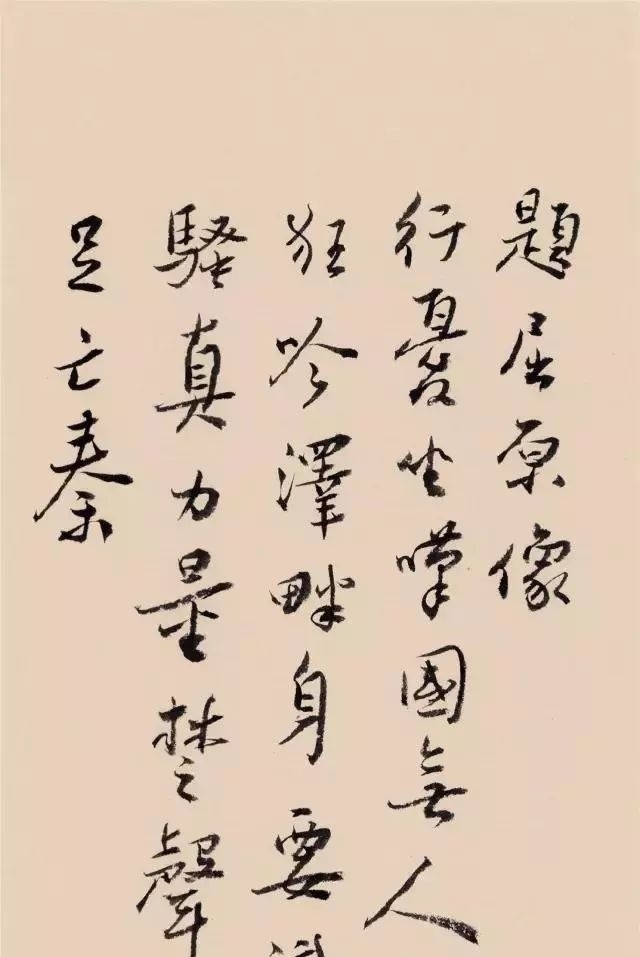 題屈原像
行憂坐嘆國無人
狂吟澤畔身要
騷真力量楚聲
足亡秦